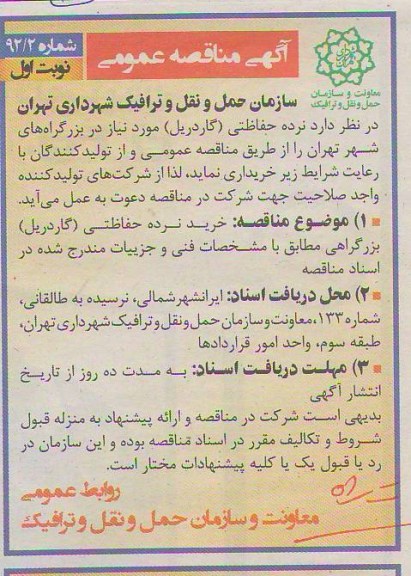 شماره ۹۲/۲
نوبت اول
آگهی مناقصه عمومی
معاونت و سازمان
حمل و نقل و ترافیک
سازمان حمل و نقل و ترافیک شهرداری تهران
در نظر دارد نرده حفاظتی (گاردریل) مورد نیاز در بزرگراه‌های
شهر تهران را از طریق مناقصه عمومی و از تولیدکنندگان با
رعایت شرایط زیر خریداری نماید، لذا از شرکت‌های تولیدکننده
واجد صلاحیت جهت شرکت در مناقصه دعوت به عمل می‌آید.
۱) موضوع مناقصه: خرید نرده حفاظتی (گاردریل)
بزرگراهی مطابق با مشخصات فنی و جزییات مندرج شده در
اسناد مناقصه
۲) محل دریافت اسناد: ایرانشهرشمالی، نرسیده به طالقانی،
شماره ۱۳۳، معاونت و سازمان حمل و نقل و ترافیک شهرداری تهران،
طبقه سوم، واحد امور قراردادها
۳) مهلت دریافت اسناد: به مدت ده روز از تاریخ
انتشار آگهی
بدیهی است شرکت در مناقصه و ارائه پیشنهاد به منزله قبول
شروط و تکالیف مقرر در اسناد مناقصه بوده و این سازمان در
رد یا قبول یک یا کلیه پیشنهادات مختار است.
روابط عمومی
معاونت و سازمان حمل و نقل و ترافیک